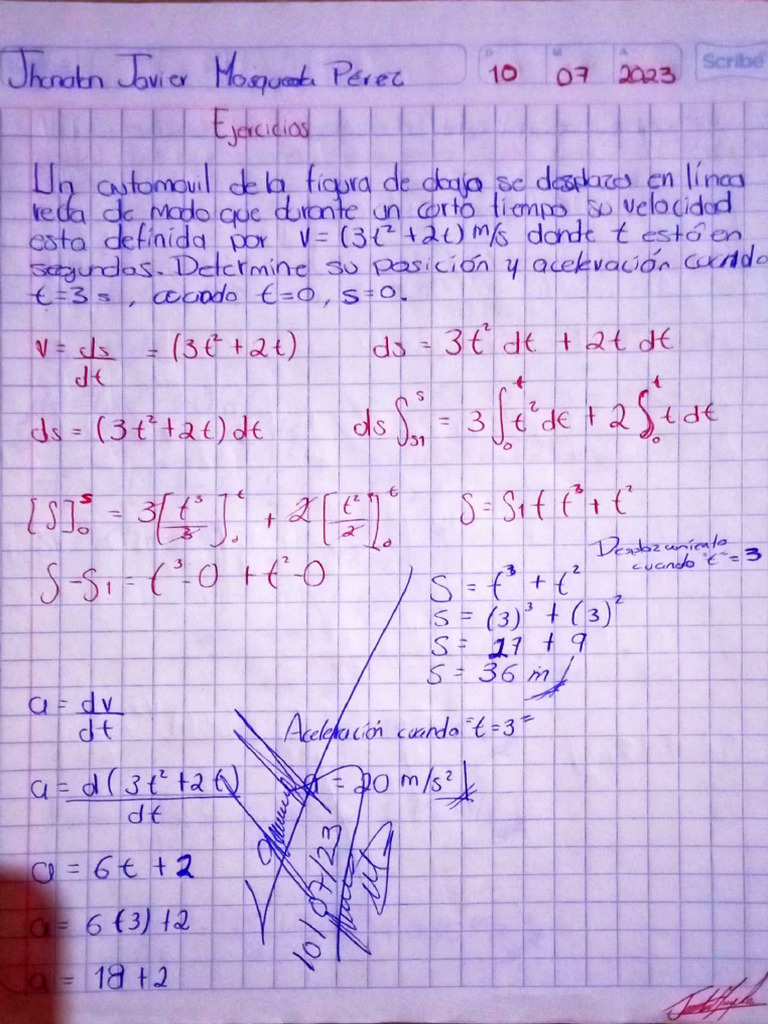 Jhonatn Javier Mosqueda Pérez
D M A
10 07 2023
Scribe
Ejercicios
Un automovil de la figura de abajo se desplaza en línea
recta de modo que durante un corto tiempo su velocidad
esta definida por v = (3t² + 2t) m/s donde t está en
segundos. Determine su posición y aceleración cuando
t = 3 s, cuando t = 0, s = 0.
v = ds/dt = (3t² + 2t)
ds = 3t² dt + 2t dt
ds = (3t² + 2t) dt
ds ∫ₛ₁ˢ = 3 ∫₀ᵗ t² dt + 2 ∫₀ᵗ t dt
[S]₀ˢ = 3[t³/3]₀ᵗ + 2[t²/2]₀ᵗ
S = S₁ + t³ + t²
S - S₁ = t³ - 0 + t² - 0
Desplazamiento
cuando "t" = 3
S = t³ + t²
S = (3)³ + (3)²
S = 27 + 9
S = 36 m
a = dv/dt
Aceleración cuando "t = 3"
a = d(3t² + 2t)/dt
a = 20 m/s²
a = 6t + 2
a = 6(3) + 2
a = 18 + 2
10/07/23